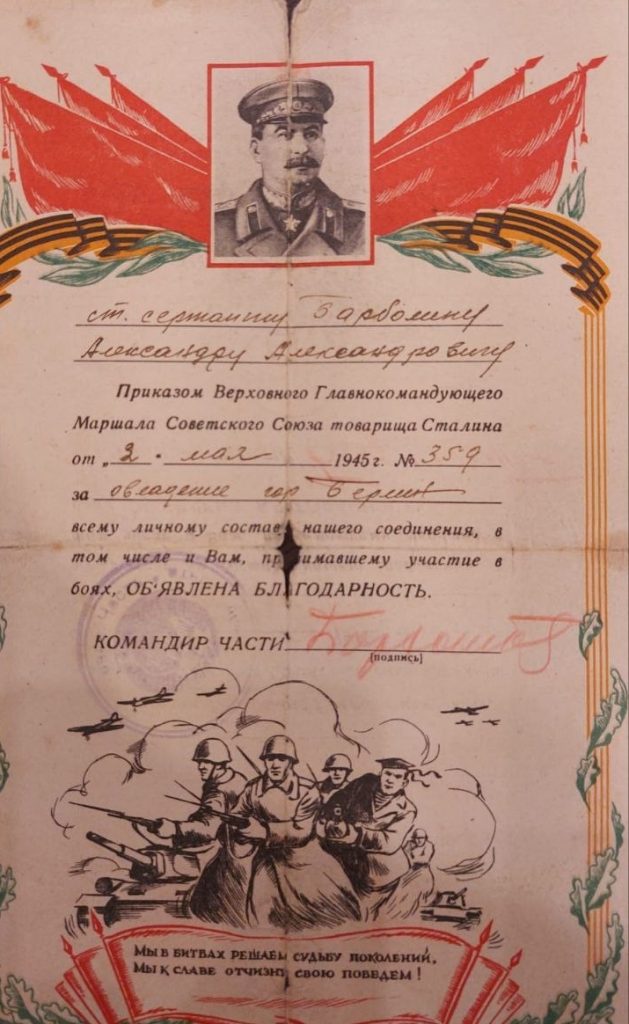 ст. сержанту Барболину
Александру Александровичу
Приказом Верховного Главнокомандующего
Маршала Советского Союза товарища Сталина
от „2“ мая 1945 г. № 359
за овладение гор Берлин
всему личному составу нашего соединения, в
том числе и Вам, принимавшему участие в
боях, ОБ'ЯВЛЕНА БЛАГОДАРНОСТЬ.
КОМАНДИР ЧАСТИ
(подпись)
МЫ В БИТВАХ РЕШАЕМ СУДЬБУ ПОКОЛЕНИЙ,
МЫ К СЛАВЕ ОТЧИЗНУ СВОЮ ПОВЕДЕМ!